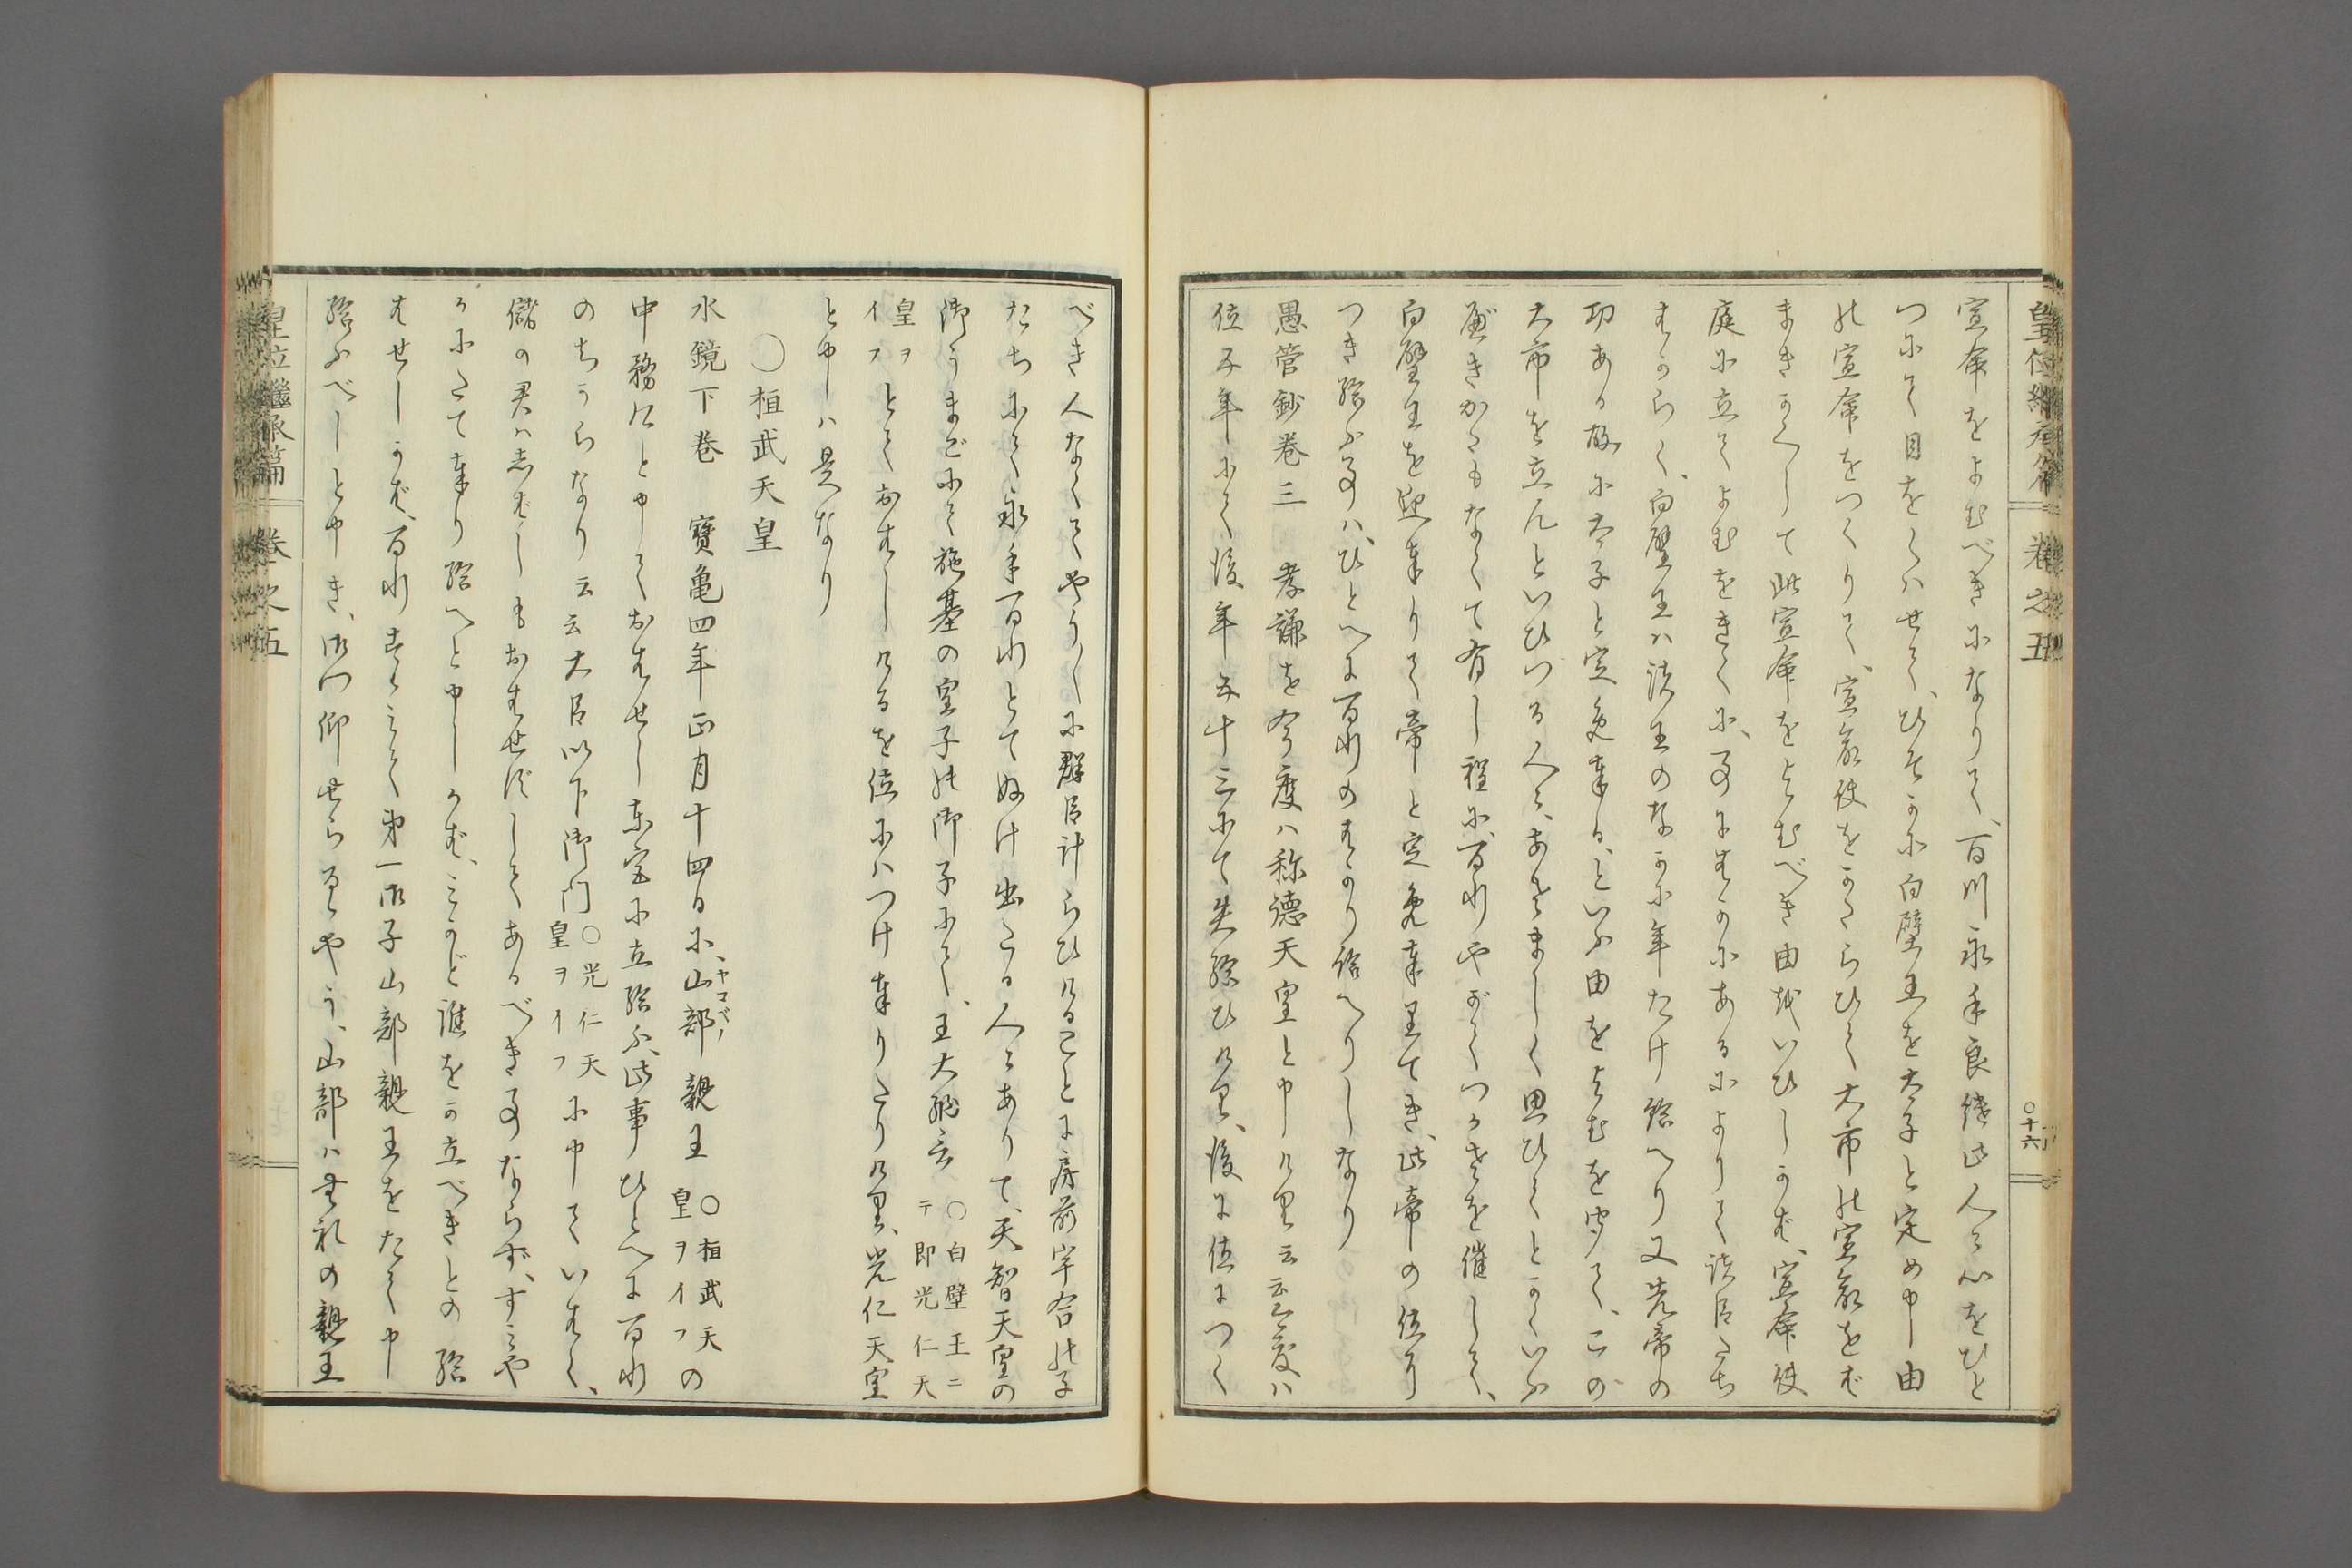 皇位繼承篇 卷之五
○十六
宣命をよむべきになりて、百川永手良繼此人々心をひと
つにて目をくはせて、ひそかに白壁王を太子と定め申由
の宣命をつくりて、宣命使をかたらひて大市の宣命をば
まきかくして此宣命をよむべき由をいひしかば、宣命使
庭に立てよむをきくに、事にはかにあるによりて諸臣たち
はからく、白壁王は諸王のなかに年たけ給へり又先帝の
功ある故に太子と定め奉る、といふ由をよむを聞て、この
大市を立んといひつる人々、あさましく思ひてとかくいふ
べきかたもなくて有し程に、百川やがてつかさを催して、
白壁王を迎奉りて帝と定め奉りてき、此帝の位に
つき給ふ事は、ひとへに百川のはかり給へりしなり
愚管鈔卷三 孝謙を今度は称德天皇と申けり云云今度は
位五年にて後年五十三にて失給ひけり、後に位につく
べき人なくてやう〱に群臣計らひけることに房前宇合の子
たちにて永手百川とてぬけ出たる人々ありて、天智天皇の
御うまごにて施基の皇子の御子にて、王大納言○白壁王ニテ即光仁天
皇ヲイフとておはしけるを位にはつけ奉りたりけり、光仁天皇
と申しは是なり
○桓武天皇
水鏡下巻 寶亀四年正月十四日に、山部ヤマベノ親王○桓武天皇ヲイフの
中務卿と申ておはせし東宮に立給ふ、此事ひとへに百川
のちからなり云云大臣以下御門○光仁天皇ヲイフに申ていはく、
儲の君はしばしもおはせずしてあるべき事ならず、すみや
かにたて奉り給へと申しかば、みかど誰をか立べきとの給
はせしかば、百川すゝみて第一御子山部親王をたて申
給ふべしと申き、御門仰せらるゝやう、山部は無礼の親王
皇位繼承篇 卷之五